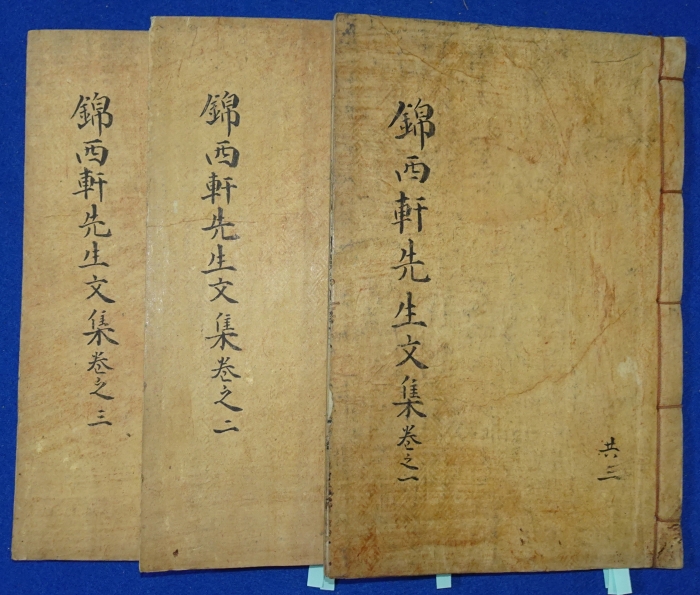 錦西軒先生文集卷之一
共三
錦西軒先生文集卷之二
錦西軒先生文集卷之三